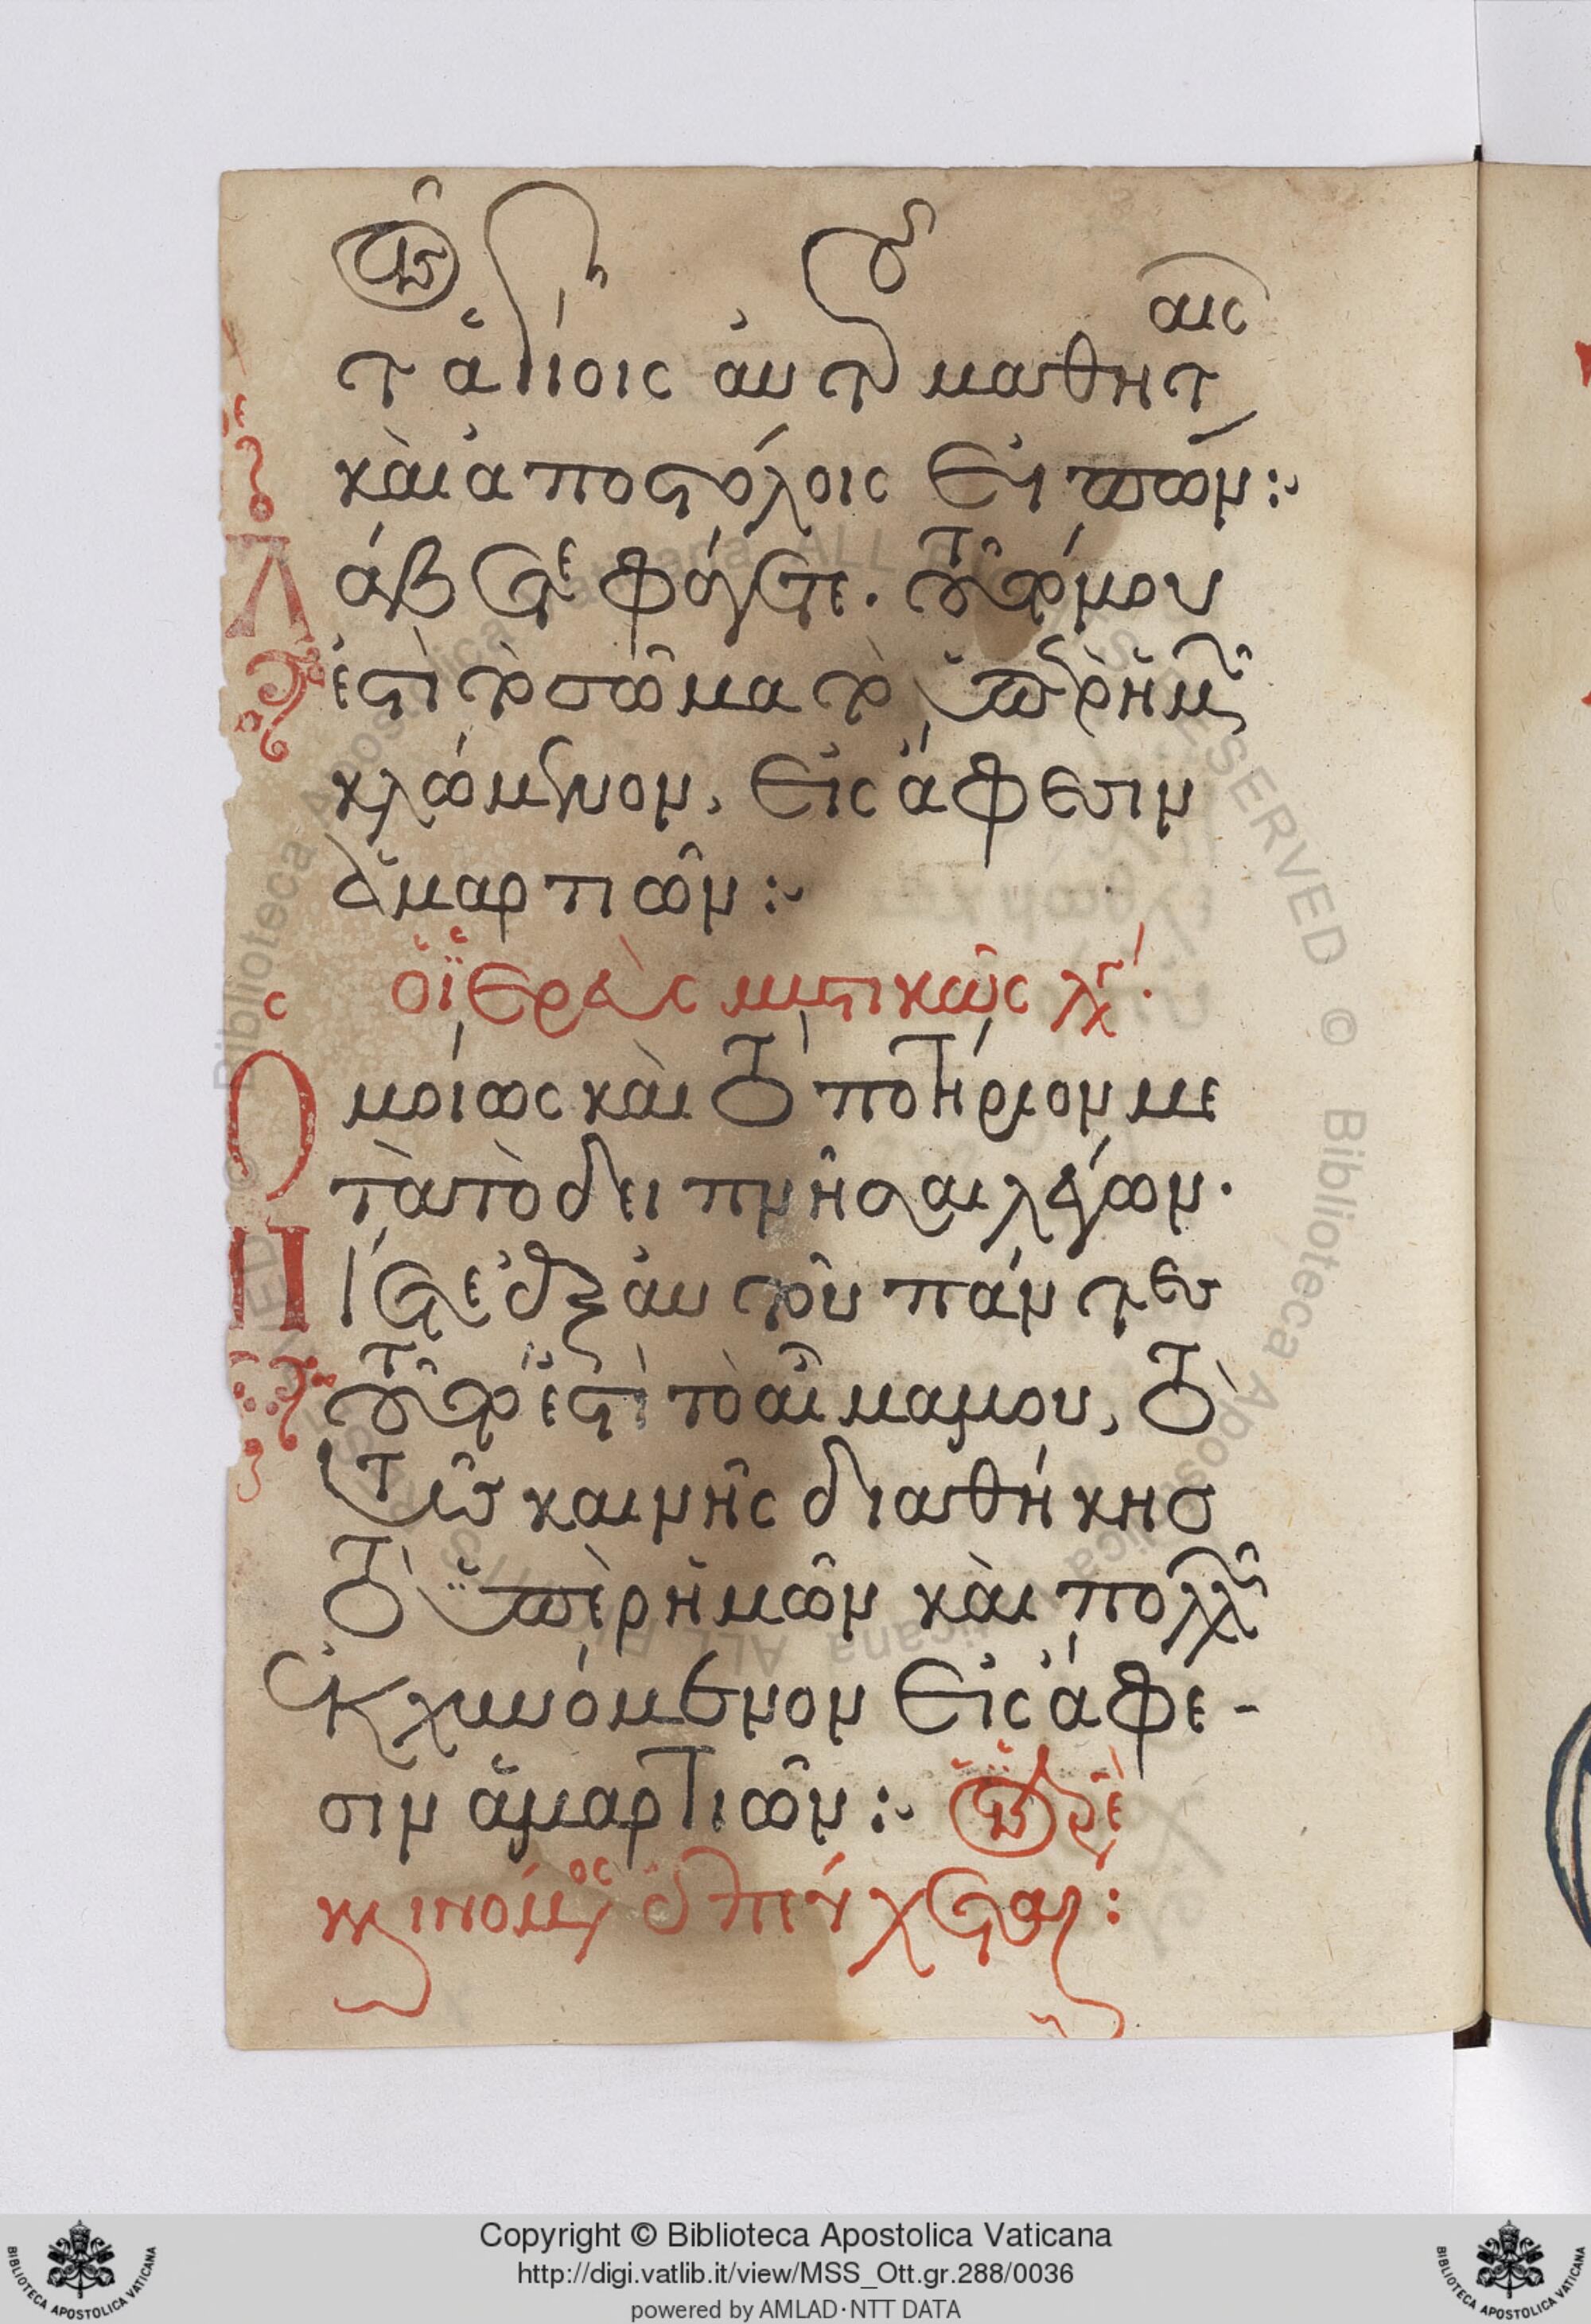 τοῖς
ἁγίοις αὐτοῦ μαθηταῖς
καὶ ἀποστόλοις εἰπών :
Λάβετε φάγετε · τοῦτό μου
ἐστὶ τὸ σῶμα τὸ ὑπὲρ ὑμῶν
κλώμενον, εἰς ἄφεσιν
ἁμαρτιῶν :
ὁ ἱερεὺς μυστικῶς λέγει ·
Ὁμοίως καὶ τὸ ποτήριον με
τὰ τὸ δειπνῆσαι λέγων ·
Πίετε ἐξ αὐτοῦ πάντες
τοῦτό ἐστὶ τὸ αἷμά μου, τὸ
τῆς καινῆς διαθήκης
τὸ ὑπὲρ ὑμῶν καὶ πολλῶν
ἐκχυνόμενον εἰς ἄφε-
σιν ἁμαρτιῶν :
κλινόμενος ὁ ἱερεὺς ἐπεύχεται :
Copyright © Biblioteca Apostolica Vaticana
http://digi.vatlib.it/view/MSS_Ott.gr.288/0036
powered by AMLAD·NTT DATA